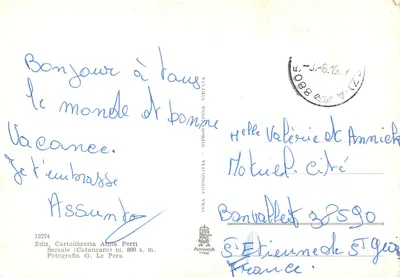 Bonjour à tous
le monde et bonne
Vacance.
Je t'embrasse
Assunta
13274
Ediz. Cartolibreria Anna Perri
Sersale (Catanzaro) m. 800 s. m.
Fotografia G. Le Pera
VERA FOTOGRAFIA - RIPRODUZIONE VIETATA
Melle Valérie et Annick
Motuel. Cité
Bonvallet 38590
St Etienne de St Geoi
France.